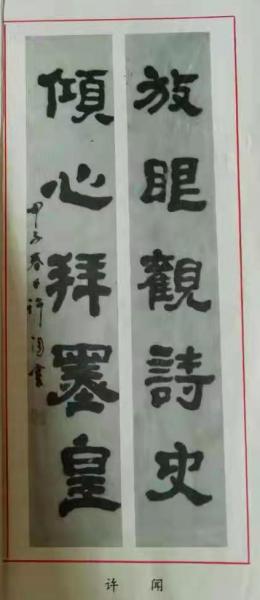 放眼觀詩史
傾心拜墨皇
甲子春日許聞書
许闻